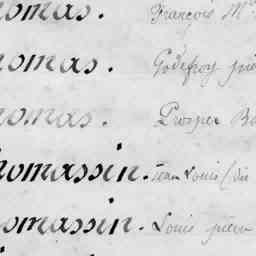 homas. François M
homas. Godefroy
homas. Prosper B
homassin. Jean Louis (dit
homassin. Louis